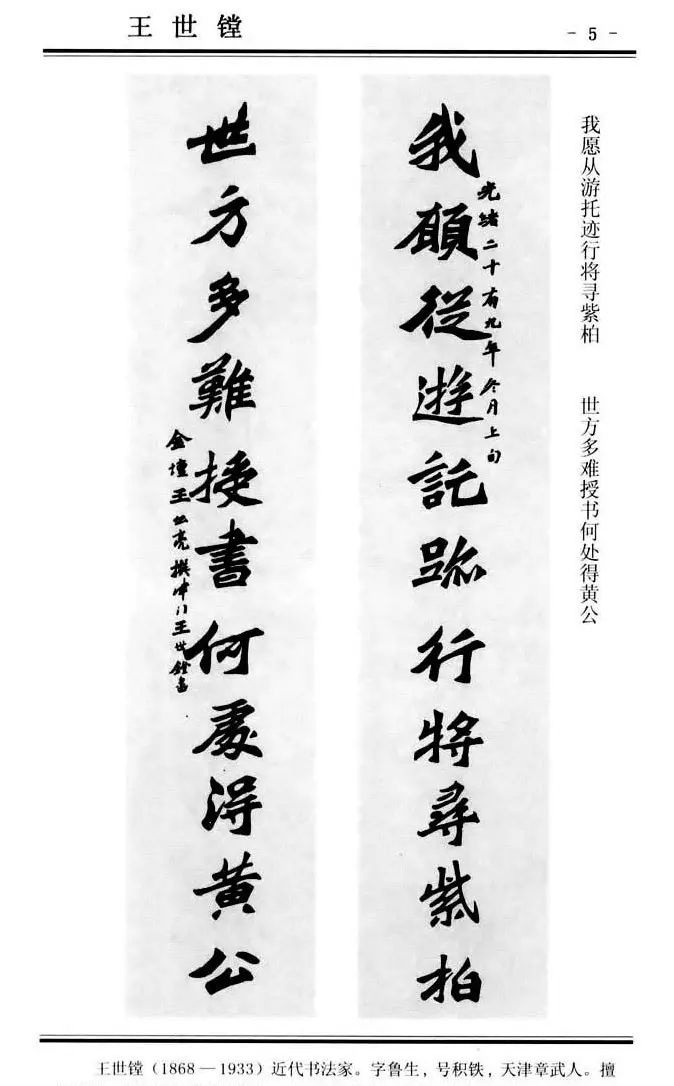 王世镗
- 5 -
我愿从游托迹行将寻紫柏 世方多难授书何处得黄公
我願從遊託跡行將尋紫柏
光緒二十有九年冬月上旬
世方多難授書何處得黃公
金壇王世亮撰津門王世鏜書
王世镗（1868—1933）近代书法家。字鲁生，号积铁，天津章武人。擅